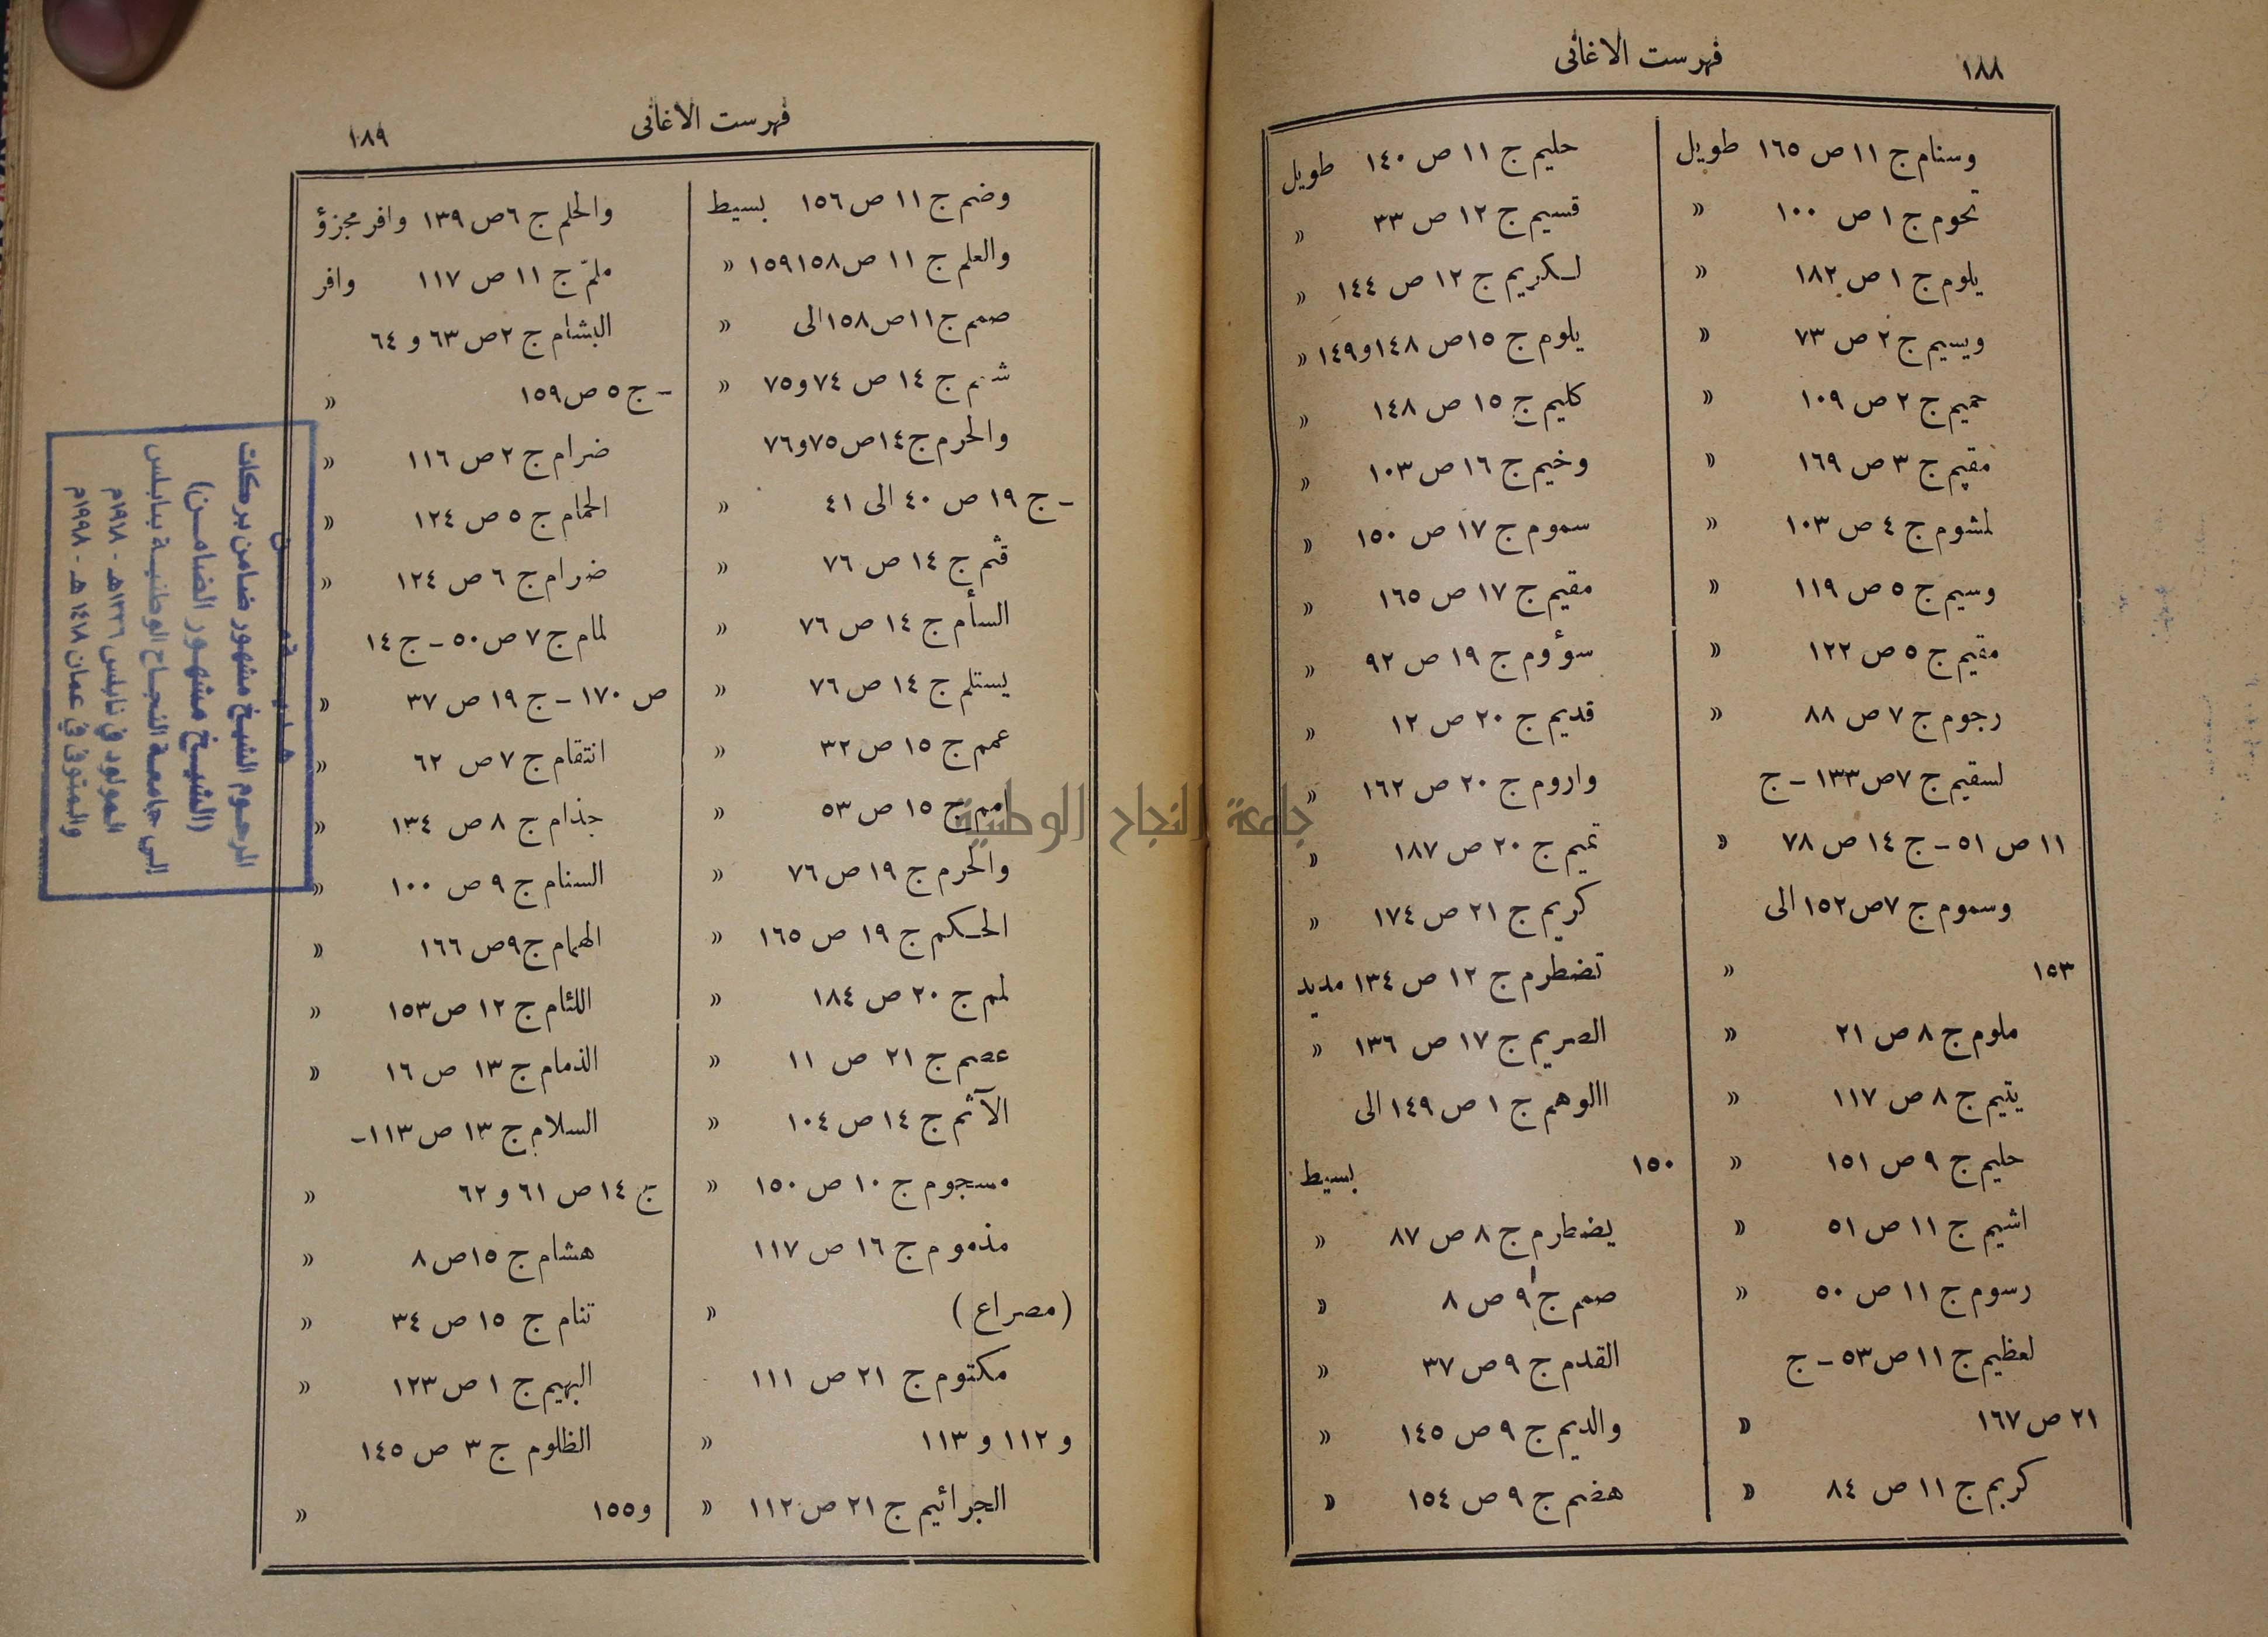 ١٨٨
فهرست الاغانى
وسنام ج ١١ ص ١٦٥ طويل
تحوم ج ١ ص ١٠٠ »
يلوم ج ١ ص ١٨٢ »
ويسيم ج ٢ ص ٧٣ »
حميم ج ٢ ص ١٠٩ »
مقيم ج ٣ ص ١٦٩ »
لمشوم ج ٤ ص ١٠٣ »
وسيم ج ٥ ص ١١٩ »
مقيم ج ٥ ص ١٢٢ »
رجوم ج ٧ ص ٨٨ »
لسقيم ج ٧ ص ١٣٣ – ج
١١ ص ٥١ – ج ١٤ ص ٧٨ »
وسموم ج ٧ ص ١٥٢ الى
١٥٣ »
ملوم ج ٨ ص ٢١ »
يتيم ج ٨ ص ١١٧ »
حليم ج ٩ ص ١٥١ »
اشيم ج ١١ ص ٥١ »
رسوم ج ١١ ص ٥٠ »
لعظيم ج ١١ ص ٥٣ – ج
٢١ ص ١٦٧ »
كريم ج ١١ ص ٨٤ »
حليم ج ١١ ص ١٤٠ طويل
قسيم ج ١٢ ص ٣٣ »
لكريم ج ١٢ ص ١٤٤ »
يلوم ج ١٥ ص ١٤٨ و ١٤٩ »
كليم ج ١٥ ص ١٤٨ »
وخيم ج ١٦ ص ١٠٣ »
سموم ج ١٧ ص ١٥٠ »
مقيم ج ١٧ ص ١٦٥ »
سوؤوم ج ١٩ ص ٩٢ »
قديم ج ٢٠ ص ١٢ »
واروم ج ٢٠ ص ١٦٢ »
تميم ج ٢٠ ص ١٨٧ »
كريم ج ٢١ ص ١٧٤ »
تضطرم ج ١٢ ص ١٣٤ مديد
الصريم ج ١٧ ص ١٣٦ »
االوهم ج ١ ص ١٤٩ الى
١٥٠ بسيط
يضطرم ج ٨ ص ٨٧ »
صمم ج ٩ ص ٨ »
القدم ج ٩ ص ٣٧ »
والديم ج ٩ ص ١٤٥ »
هضم ج ٩ ص ١٥٤ »
فهرست الاغانى
١٨٩
وضم ج ١١ ص ١٥٦ بسيط
والعلم ج ١١ ص ١٥٨ ١٥٩ »
صمم ج ١١ ص ١٥٨ الى »
شم ج ١٤ ص ٧٤ و ٧٥ »
والحرم ج ١٤ ص ٧٥ و ٧٦
– ج ١٩ ص ٤٠ الى ٤١ »
قثم ج ١٤ ص ٧٦ »
السأم ج ١٤ ص ٧٦ »
يستلم ج ١٤ ص ٧٦ »
عمم ج ١٥ ص ٣٢ »
امم ج ١٥ ص ٥٣ »
والحرم ج ١٩ ص ٧٦ »
الحكم ج ١٩ ص ١٦٥ »
لم ج ٢٠ ص ١٨٤ »
عصم ج ٢١ ص ١١ »
الآثم ج ١٤ ص ١٠٤ »
مسجوم ج ١٠ ص ١٥٠ »
مذموم ج ١٦ ص ١١٧
(مصراع) »
مكتوم ج ٢١ ص ١١١
و ١١٢ و ١١٣ »
الجرائيم ج ٢١ ص ١١٢ »
والحلم ج ٦ ص ١٣٩ وافر مجزؤ
ملمّ ج ١١ ص ١١٧ وافر
البشام ج ٢ ص ٦٣ و ٦٤
– ج ٥ ص ١٥٩ »
ضرام ج ٢ ص ١١٦ »
الحمام ج ٥ ص ١٢٤ »
ضرام ج ٦ ص ١٢٤ »
لمام ج ٧ ص ٥٠ – ج ١٤
ص ١٧٠ – ج ١٩ ص ٣٧ »
انتقام ج ٧ ص ٦٢ »
جذام ج ٨ ص ١٣٤ »
السنام ج ٩ ص ١٠٠ »
الهمام ج ٩ ص ١٦٦ »
اللئام ج ١٢ ص ١٥٣ »
الذمام ج ١٣ ص ١٦ »
السلام ج ١٣ ص ١١٣ –
ج ١٤ ص ٦١ و ٦٢ »
هشام ج ١٥ ص ٨ »
تنام ج ١٥ ص ٣٤ »
البهيم ج ١ ص ١٢٣ »
الظلوم ج ٣ ص ١٤٥
و ١٥٥ »
المرحوم الشيخ مشهور ضامن بركات
(الشيخ مشهور الضامن)
إلى جامعة النجاح الوطنية بنابلس
المولود في نابلس ١٣٣٦هـ - ١٩١٨م
والمتوفى في عمان ١٤١٨هـ - ١٩٩٨م
جامعة النجاح الوطنية